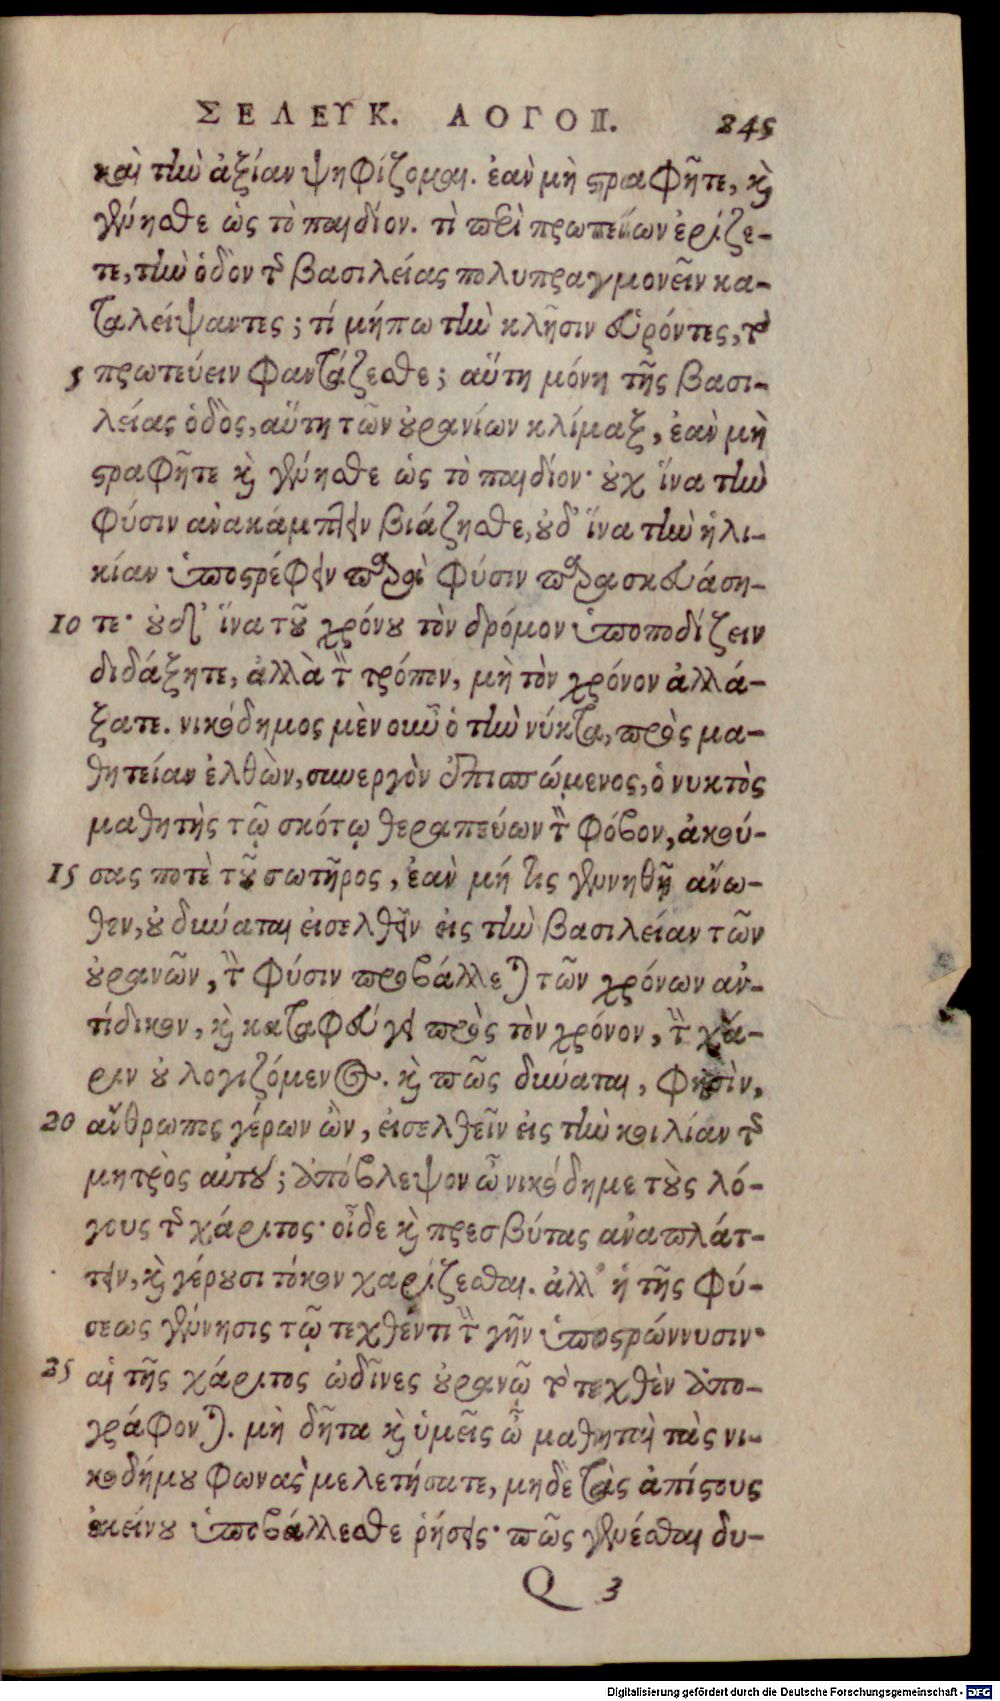 ΣΕΛΕΥΚ. ΛΟΓΟΙ. 245
καὶ τὴν ἀξίαν ψηφίζομαι. ἐὰν μὴ στραφῆτε, καὶ
γένησθε ὡς τὸ παιδίον. τὶ περὶ πρωτείων ἐρίζε-
τε, τὴν ὁδὸν τῆς βασιλείας πολυπραγμονεῖν κα-
ταλείψαντες; τί μήπω τὴν κλῆσιν εὑρόντες, τὸ
5 πρωτεύειν φαντάζεσθε; αὕτη μόνη τῆς βασι-
λείας ὁδὸς, αὕτη τῶν οὐρανίων κλίμαξ, ἐὰν μὴ
στραφῆτε καὶ γένησθε ὡς τὸ παιδίον· οὐχ ἵνα τὴν
φύσιν ἀνακάμπτειν βιάζησθε, οὐδ' ἵνα τὴν ἡλι-
κίαν ὑποστρέφειν παρὰ φύσιν παρασκευάση-
10 τε· οὐδ' ἵνα τοῦ χρόνου τὸν δρόμον ὑποποδίζειν
διδάξητε, ἀλλὰ τὸν τρόπον, μὴ τὸν χρόνον ἀλλά-
ξατε. νικόδημος μὲν οὖν ὁ τὴν νύκτα, πρὸς μα-
θητείαν ἐλθὼν, συνεργὸν ἐπισπώμενος, ὁ νυκτὸς
μαθητὴς τῷ σκότῳ θεραπεύων τὸν φόβον, ἀκού-
15 σας ποτὲ τοῦ σωτῆρος, ἐὰν μή τις γεννηθῇ ἄνω-
θεν, οὐ δύναται εἰσελθεῖν εἰς τὴν βασιλείαν τῶν
οὐρανῶν, τὴν φύσιν προβάλλεται τῶν χρόνων ἀν-
τίδικον, καὶ καταφεύγει πρὸς τὸν χρόνον, τὴν χά-
ριν οὐ λογιζόμενος. καὶ πῶς δύναται, φησὶν,
20 ἄνθρωπος γέρων ὢν, εἰσελθεῖν εἰς τὴν κοιλίαν τῆς
μητρὸς αὐτοῦ; ἀπόβλεψον ὦ νικόδημε τοὺς λό-
γους τῆς χάριτος· οἶδε καὶ πρεσβύτας ἀναπλάτ-
τειν, καὶ γέρουσι τόκον χαρίζεσθαι. ἀλλ' ἡ τῆς φύ-
σεως γέννησις τῷ τεχθέντι τὴν γῆν ὑποστρώννυσιν·
25 αἱ τῆς χάριτος ὠδῖνες οὐρανῷ τὸ τεχθὲν ἀπο-
γράφονται. μὴ δῆτα καὶ ὑμεῖς ὦ μαθηταὶ τὰς νι-
κοδήμου φωνὰς μελετήσατε, μηδὲ τὰς ἀπίστους
ἐκείνου ὑποβάλλεσθε ῥήσεις· πῶς γενέσθαι δυ-
Q 3
Digitalisierung gefördert durch die Deutsche Forschungsgemeinschaft - DFG